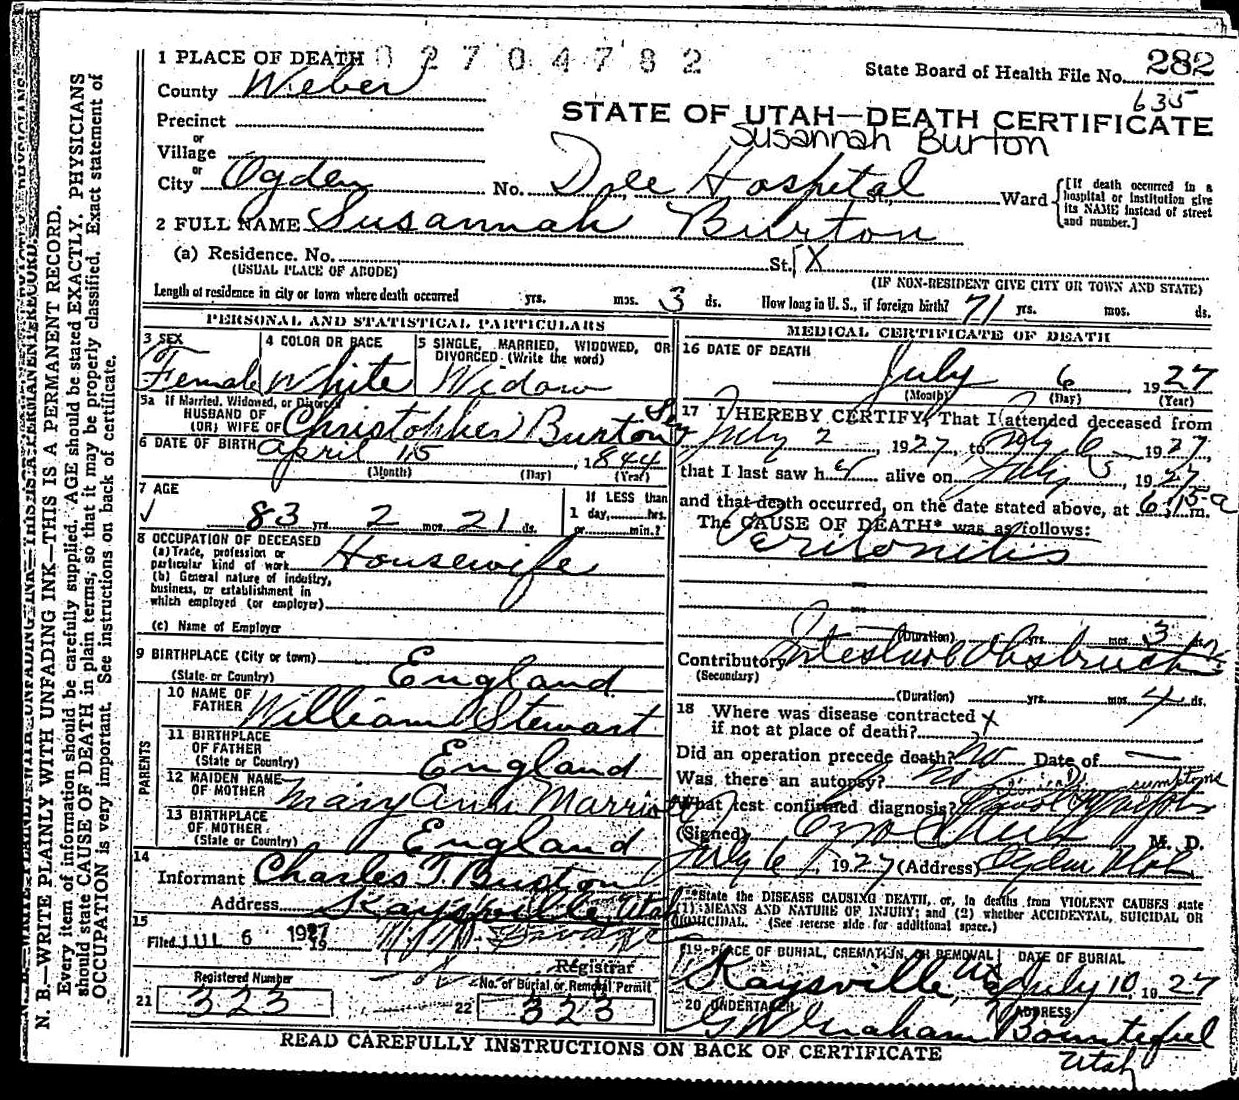 1 PLACE OF DEATH 02704782
State Board of Health File No. 282
635
County Weber
STATE OF UTAH—DEATH CERTIFICATE
Precinct
Susannah Burton
or
Village
or
City Ogden No. Dee Hospital St., Ward [If death occurred in a hospital or institution give its NAME instead of street and number.]
2 FULL NAME Susannah Burton
(a) Residence. No. St. X
(USUAL PLACE OF ABODE) (IF NON-RESIDENT GIVE CITY OR TOWN AND STATE)
Length of residence in city or town where death occurred yrs. mos. 3 ds. How long in U. S., if foreign birth? 71 yrs. mos. ds.
PERSONAL AND STATISTICAL PARTICULARS
3 SEX
Female
4 COLOR OR RACE
White
5 SINGLE, MARRIED, WIDOWED, OR DIVORCED (Write the word)
Widow
5a If Married, Widowed, or Divorced
HUSBAND OF
(OR) WIFE OF Christopher Burton
6 DATE OF BIRTH April 15, 1844
(Month) (Day) (Year)
7 AGE
83 yrs. 2 mos. 21 ds.
If LESS than
1 day, hrs.
or min.?
8 OCCUPATION OF DECEASED
(a) Trade, profession or
particular kind of work Housewife
(b) General nature of industry,
business, or establishment in
which employed (or employer)
(c) Name of Employer
9 BIRTHPLACE (City or town)
(State or Country) England
PARENTS
10 NAME OF
FATHER William Stewart
11 BIRTHPLACE
OF FATHER
(State or Country) England
12 MAIDEN NAME
OF MOTHER Mary Ann Marriott
13 BIRTHPLACE
OF MOTHER
(State or Country) England
14
Informant Charles T Burton
Address Kaysville Utah
15
Filed JUL 6 1927
Registrar
Registered Number
21 323
No. of Burial or Removal Permit
22 323
MEDICAL CERTIFICATE OF DEATH
16 DATE OF DEATH
July 6, 1927
(Month) (Day) (Year)
17 I HEREBY CERTIFY, That I attended deceased from
July 2, 1927, to July 6, 1927,
that I last saw her alive on July 5, 1927,
and that death occurred, on the date stated above, at 6:15 a m.
The CAUSE OF DEATH* was as follows:
Peritonitis
(Duration) yrs. mos. 3
Contributory Intestinal Obstruction
(Secondary)
(Duration) yrs. mos. 4 ds.
18 Where was disease contracted
if not at place of death? X
Did an operation precede death? No Date of
Was there an autopsy? No
What test confirmed diagnosis?
(Signed) M. D.
July 6, 1927 (Address) Ogden Utah
*State the DISEASE CAUSING DEATH, or, in deaths from VIOLENT CAUSES state
(1) MEANS AND NATURE OF INJURY; and (2) whether ACCIDENTAL, SUICIDAL OR
HOMICIDAL. (See reverse side for additional space.)
19 PLACE OF BURIAL, CREMATION, OR REMOVAL
Kaysville, Ut
DATE OF BURIAL
July 10, 1927
20 UNDERTAKER
ADDRESS
Bountiful
Utah
READ CAREFULLY INSTRUCTIONS ON BACK OF CERTIFICATE
N. B.—WRITE PLAINLY WITH UNFADING INK—THIS IS A PERMANENT RECORD.
Every item of information should be carefully supplied. AGE should be stated EXACTLY. PHYSICIANS
should state CAUSE OF DEATH in plain terms, so that it may be properly classified. Exact statement of
OCCUPATION is very important. See instructions on back of certificate.